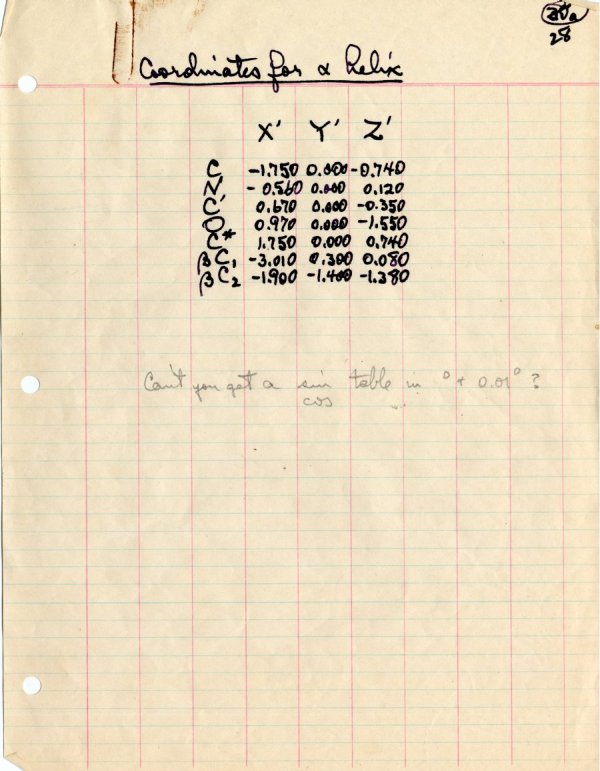 28
Coordinates for α helix
X' Y' Z'
C -1.750 0.000 -0.740
N -0.560 0.000 0.120
C' 0.670 0.000 -0.350
O 0.970 0.000 -1.550
C* 1.750 0.000 0.740
βC₁ -3.010 0.300 0.080
βC₂ -1.900 -1.400 -1.380
Can't you get a sin table in ° + 0.01° ?
cos "